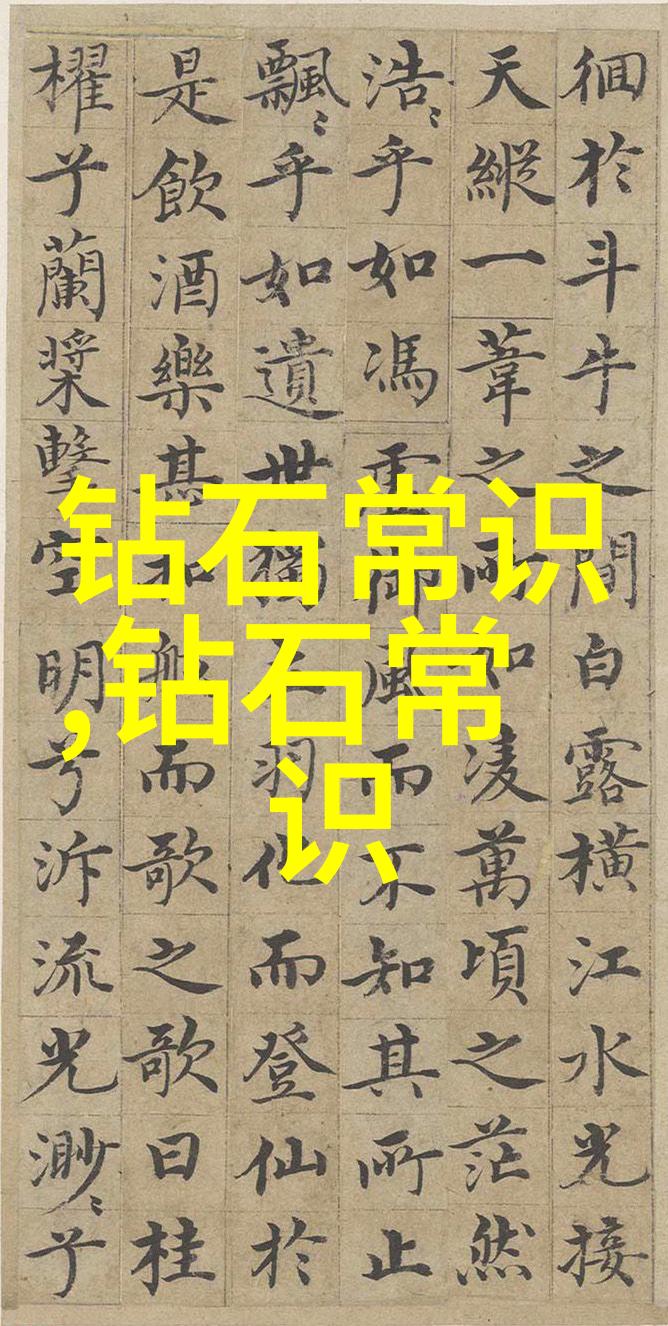 徊於斗牛之間白露橫江水光接
天縱一葦之所如凌萬頃之茫然
浩〻乎如馮虛御風而不知其所止
飄〻乎如遺世獨立羽化而登仙於
是飲酒樂甚扣舷而歌之歌曰桂
櫂兮蘭槳擊空明兮泝流光渺〻兮
钻石常识
,钻石常
识